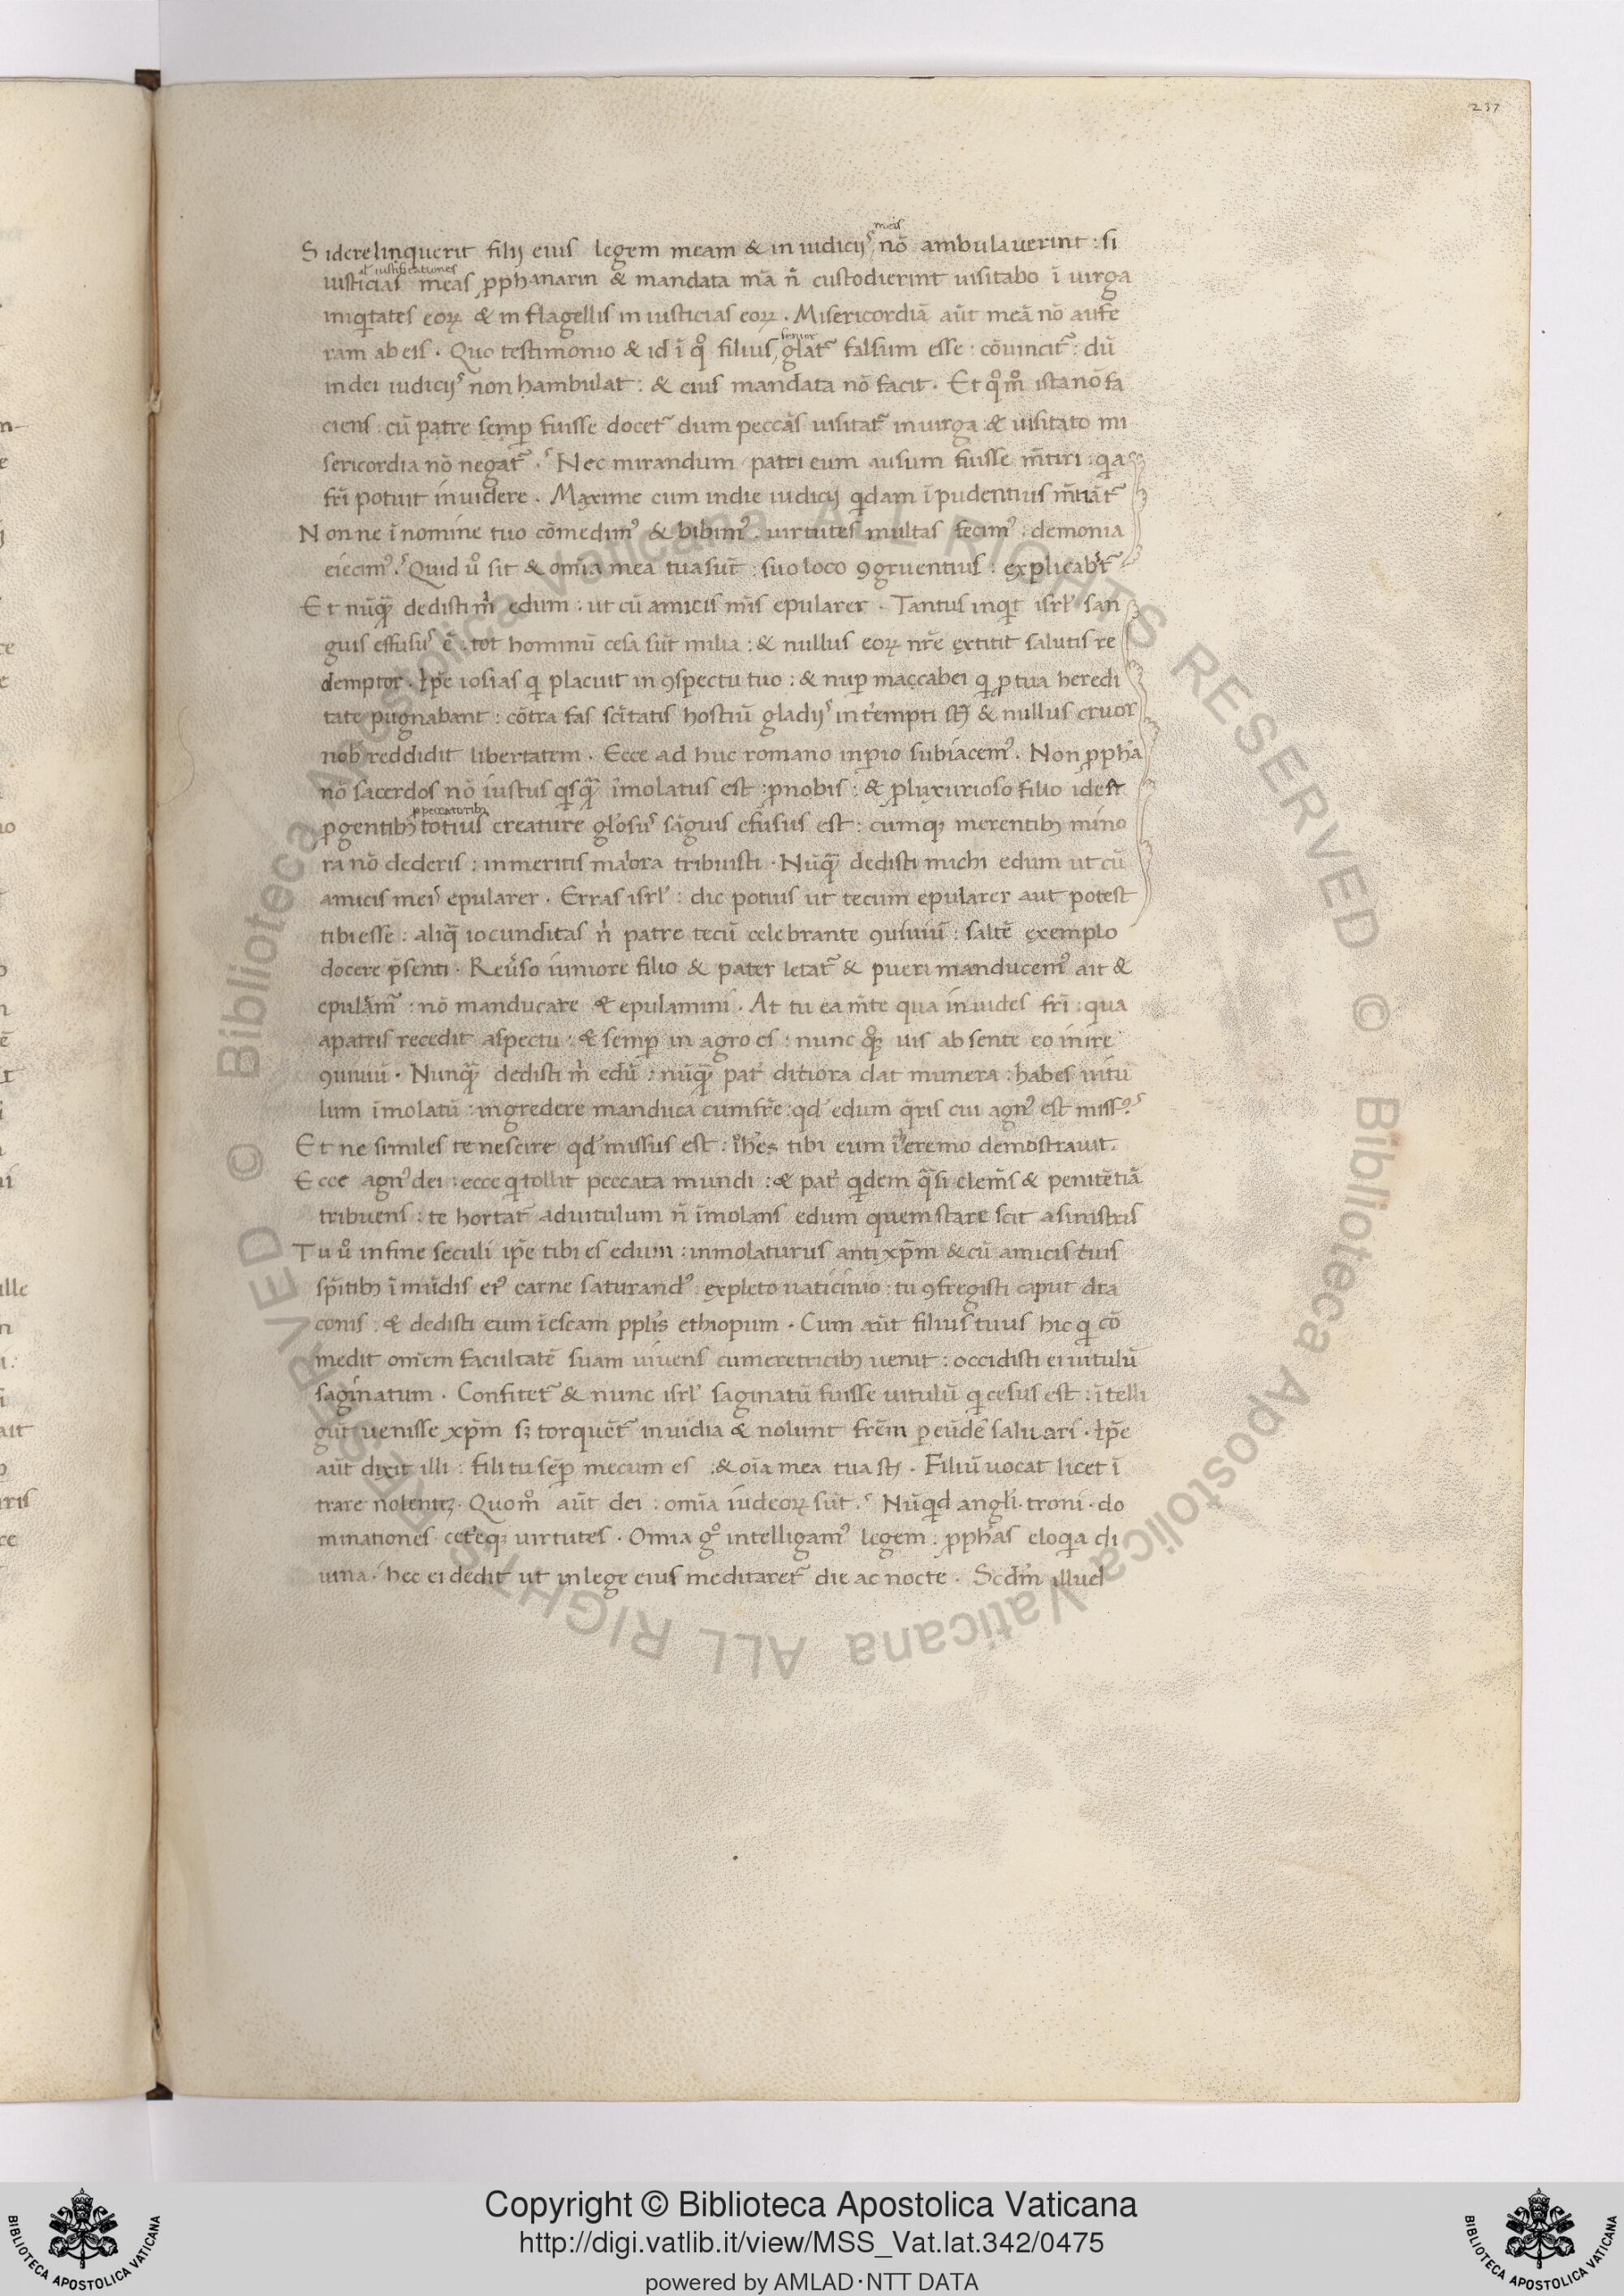 237
Siderelinquerit filij eius legem meam & in iudicijs meis nō ambulauerint : si
ut iustificationes
iusticias meas, pphanarin & mandata mā ñ custodierint uisitabo ī uirga
iniqitates eoꝝ & in flagellis in iusticias eoꝝ . Misericordiā aūt meā nō aufe
ram ab eis . Quo testimonio & id ī qͦ filius, senior glat᷑ falsum esse : cōuincit᷑ : dū
in dei iudicijs non hambulat : & eius mandata nō facit . Et qͦmͦ ista nō fa
ciens : cū patre semꝑ fuisse docet᷑ dum peccās uisitat᷑ in uirga & uisitato mi
sericordia nō negat᷑ . Nec mirandum patri eum ausum fuisse m̄tiri : qia
fr̄i potuit inuidere . Maxime cum indie iudicij qidam īpudentius m̄tiāt᷑
Non ne ī nomine tuo cōmedimꝰ & bibimꝰ . uirtutes multas fecimꝰ : demonia
eiecimꝰ . Quid uͦ sit & omia mea tua sūt : suo loco ꝯgruentius : explicabr̄t᷑
Et nūqꝫ dedisti m̄ edum : ut cū amicis m̄is epularer . Tantus inqit isrl̓ san
guis effusus ē . tot hominū cesa sūt milia : & nullus eoꝝ nr̄e extitit salutis re
demptor . Ip̄e iosias qi placuit in ꝯspectu tuo : & nuꝑ maccabei qi ꝓ tua heredi
tate pugnabant : cōtra fas sc̄itatis hostiū gladijs int̓empti st̄ & nullus cruor
nob̄ reddidit libertatem . Ecce ad huc romano inꝑio subiacemꝰ . Non ꝓph̄a
nō sacerdos nō iustus qisqͣ īmolatus est : ꝓnobis : & ꝓluxurioso filio idest
ꝓ peccatoribꝫ
ꝓgentibꝫ totius creature gl̓osus sāguis efusus est : cumqꝫ merentibꝫ mino
ra nō dederis : inmeritis maiora tribuisti . Nūqꝫ dedisti michi edum ut cū
amicis meis epularer . Erras isrl̓ : dic potius ut tecum epularer aut potest
tibi esse : aliqͣ iocunditas n̓ patre tecū celebrante ꝯuiuiū : saltē exemplo
docere p̄senti . Reu̓so iuniore filio & pater letat᷑ & pueri manducemꝰ ait &
epulām᷑ : nō manducare & epulamini . At tu ea m̄te qua inuides fr̄i : qua
apatris recedit aspectu : & semꝑ in agro es : nunc qͦqꝫ uis ab sente eo inire
ꝯuiuiū . Nunqꝫ dedisti m̄ edū : nūqꝫ pat̓ ditiora dat munera : habes uitu
lum īmolatū : ingredere manduca cumfr̄e : qd̓ edum q̄ris cui agnꝰ est missꝰ
Et ne similes te nescire qd̓ missus est : ioh̄es tibi eum ī eremo demostrauit .
Ecce agnꝰ dei : ecce qi tollit peccata mundi : & pat̓ qidem qͣsi clem̄s & penitētiā
tribuens : te hortat᷑ aduitulum n̄ īmolans edum quem stare scit asinistris
Tu uͦ infine seculi ip̄e tibi es edum : inmolaturus antixp̄m & cū amicis tuis
sp̄itibꝫ īmūdis eiꝰ carne saturandꝰ : expleto uaticinio : tu ꝯfregisti caput dra
conis : & dedisti eum ī escam pplis ethiopum . Cum aūt filius tuus hic qi cō
medit om̄em facultatē suam uiuens cumeretricibꝫ uenit : occidisti ei uitulū
saginatum . Confitet᷑ & nunc isrl̓ saginatū fuisse uitulū qi cesus est : ītelli
gūt uenisse xp̄m sꝫ torquēt᷑ inuidia & nolunt fr̄em ꝑeūdē saluari . Ip̄e
aūt dixit illi : fili tu sēꝑ mecum es : & oīa mea tua st̄ . Filiū uocat licet ī
trare nolentē . Quomͦ aūt dei : omīa iudeoꝝ sūt . Nūqid angli . troni . do
minationes . cet̓eqꝫ uirtutes . Omia gͦ intelligamꝰ legem : ꝓph̄as eloqia di
uina . hec ei dedit ut inlege eius meditaret᷑ die ac nocte . Scd̄m illud
Copyright © Biblioteca Apostolica Vaticana
http://digi.vatlib.it/view/MSS_Vat.lat.342/0475
powered by AMLAD·NTT DATA